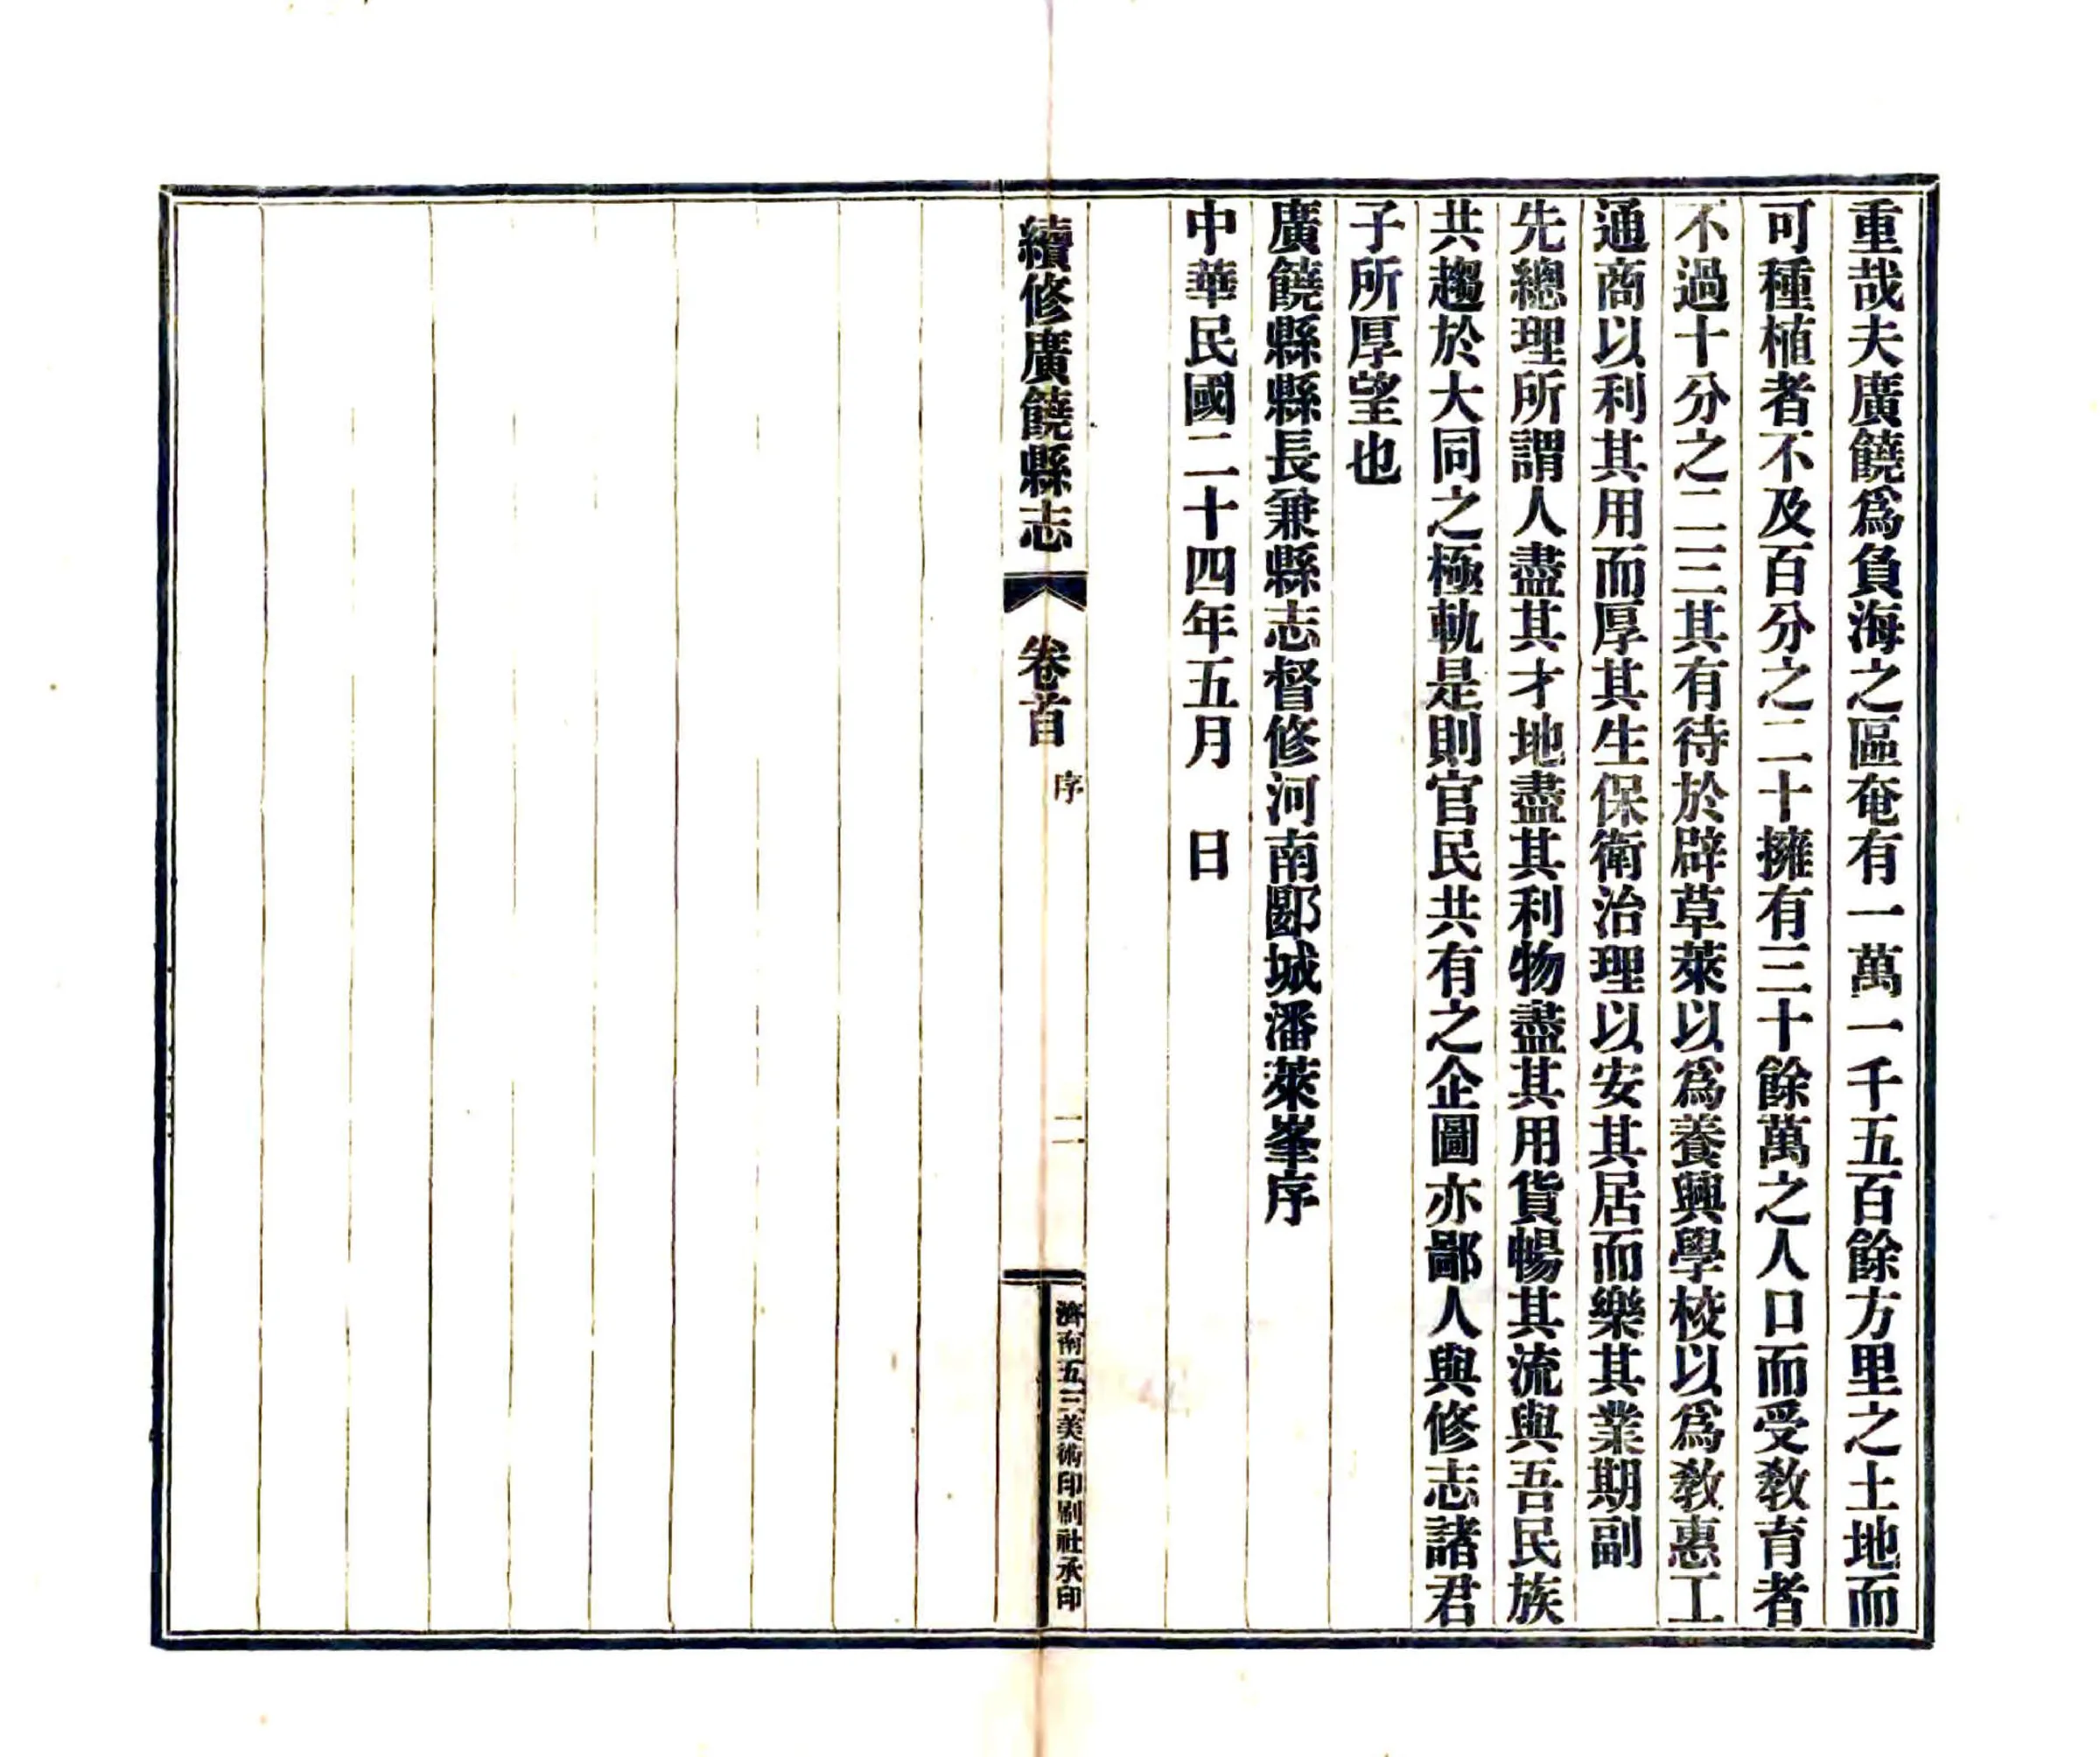 重哉夫廣饒爲負海之區奄有一萬一千五百餘方里之土地而
可種植者不及百分之二十擁有三十餘萬之人口而受教育者
不過十分之二三其有待於辟草萊以爲養興學校以爲教惠工
通商以利其用而厚其生保衛治理以安其居而樂其業期副
先總理所謂人盡其才地盡其利物盡其用貨暢其流與吾民族
共趨於大同之極軌是則官民共有之企圖亦鄙人與修志諸君
子所厚望也
廣饒縣縣長兼縣志督修河南郾城潘萊峯序
中華民國二十四年五月　日
續修廣饒縣志　卷首　序　二　濟南五三美術印刷社承印